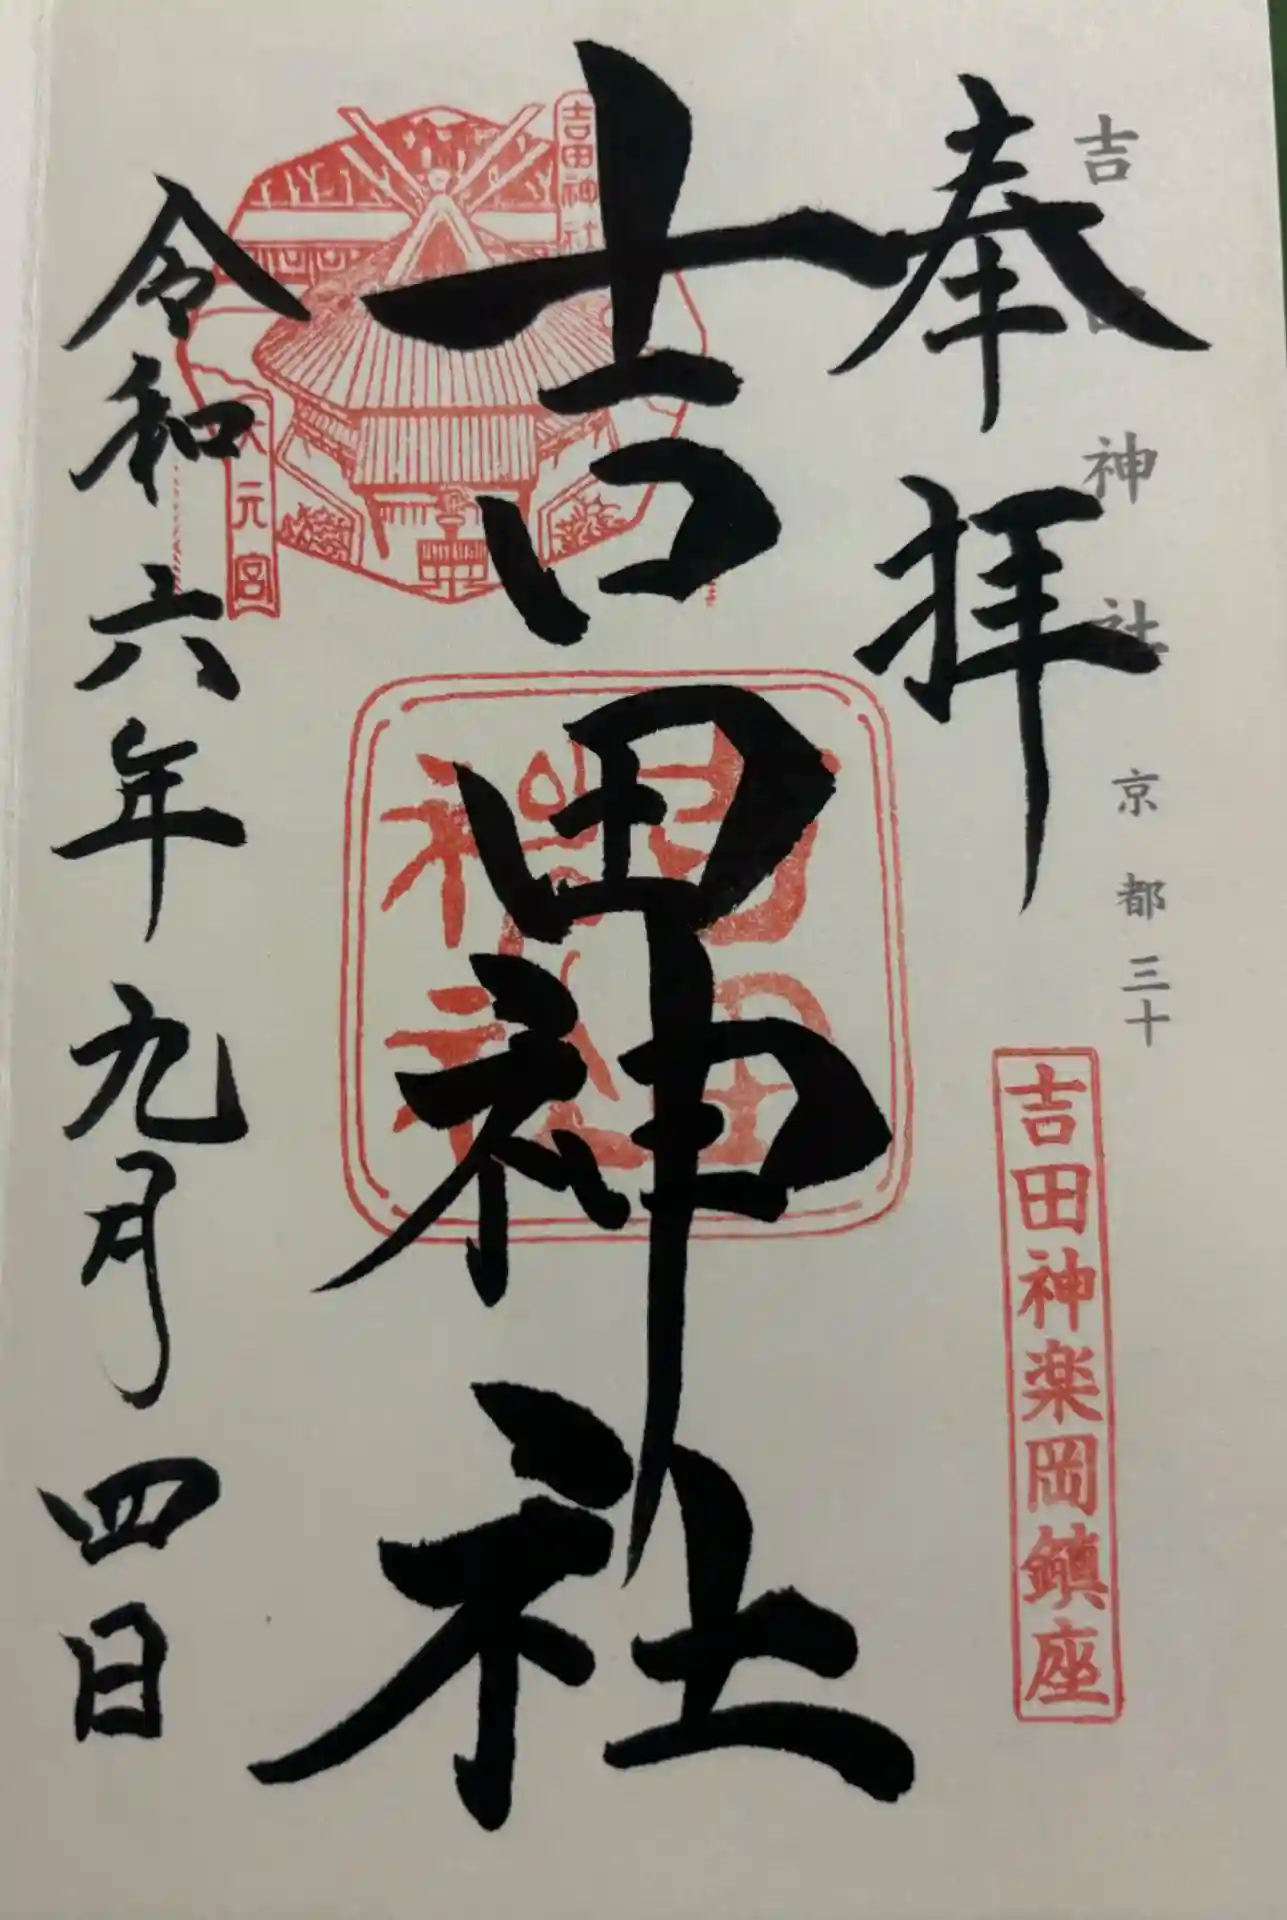 吉田神社 京都三十
奉拝
吉田神楽岡鎮座
吉田神社
吉田神社
大元宮
吉田神社
令和六年九月四日